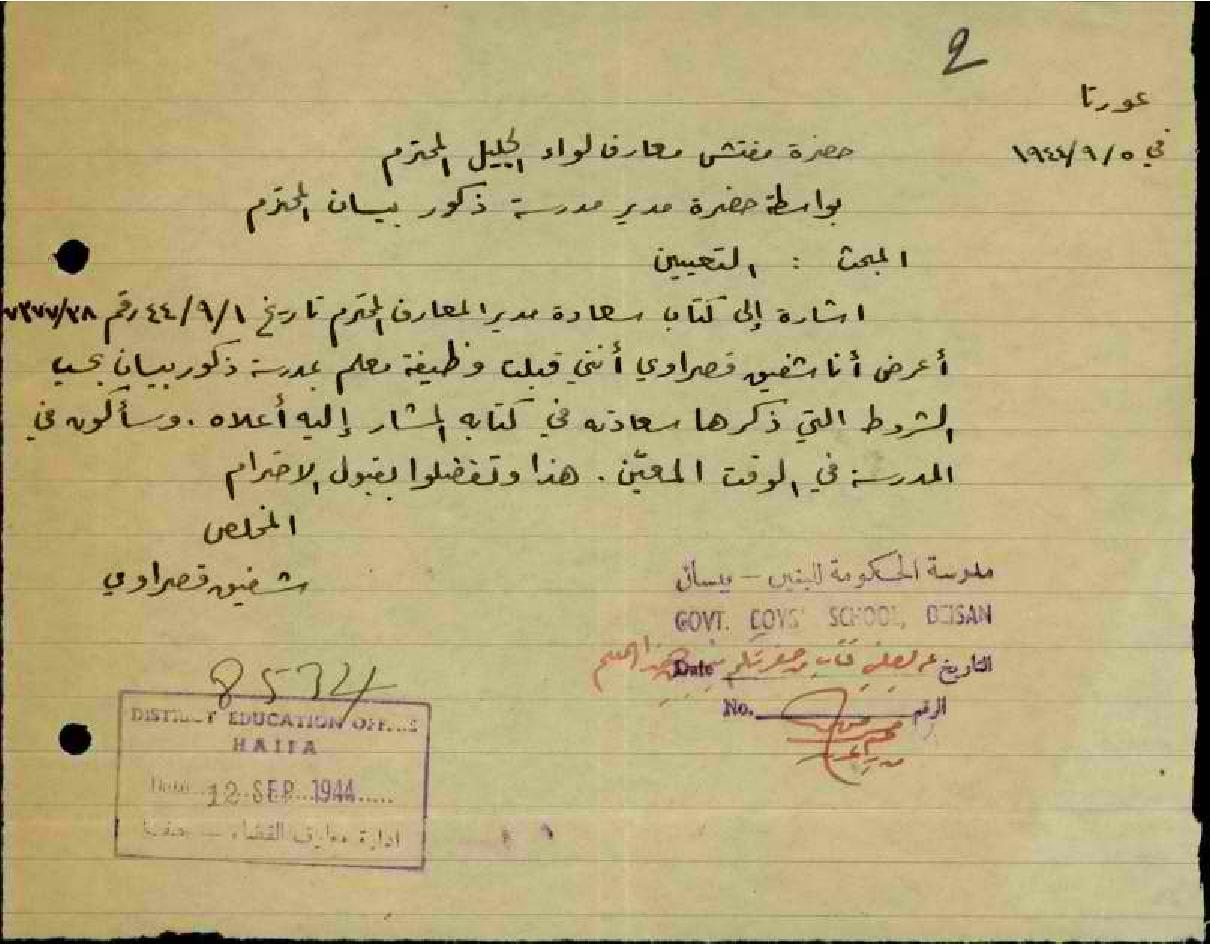 2
عورتا
في ١٩٤٤/٩/٥
حضرة مفتش معارف لواء الجليل المحترم
بواسطة حضرة مدير مدرسة ذكور بيسان المحترم
المبحث : التعيين
اشارة إلى كتاب سعادة مدير المعارف المحترم تاريخ ٤٤/٩/١ رقم
أعرض أنا شفيق قصراوي أنني قبلت وظيفة معلم بمدرسة ذكور بيسان بحسب
الشروط التي ذكرها سعادته في كتابه المشار إليه أعلاه . وسأكون في
المدرسة في الوقت المعيّن . هذا وتفضلوا بقبول الاحترام
المخلص
شفيق قصراوي
مدرسة الحكومة للبنين – بيسان
GOVT. BOYS' SCHOOL, BEISAN
التاريخ Date
الرقم No.
DISTRICT EDUCATION OFFICE
HAIFA
Date 12 SEP 1944
ادارة معارف القضاء – حيفا